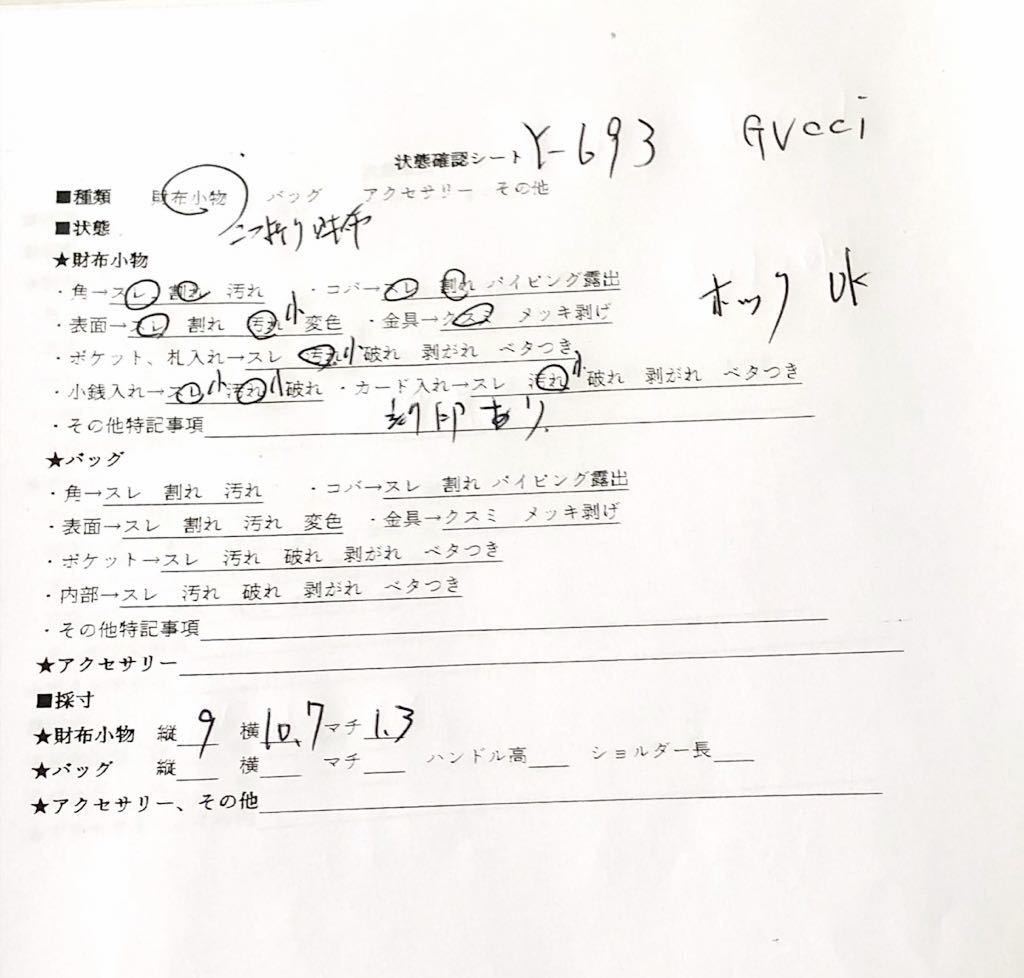 状態確認シート Y-693 GUCCI
■種類 財布小物 バッグ アクセサリー その他
■状態 二つ折り財布
★財布小物
・角→スレ 割れ 汚れ ・コバ→スレ 割れ パイピング露出
ホック OK
・表面→スレ 割れ 汚れ小 変色 ・金具→クスミ メッキ剥げ
・ポケット、札入れ→スレ 汚れ小 破れ 剥がれ ベタつき
・小銭入れ→スレ小 汚れ小 破れ ・カード入れ→スレ 汚れ小 破れ 剥がれ ベタつき
・その他特記事項 刻印あり
★バッグ
・角→スレ 割れ 汚れ ・コバ→スレ 割れ パイピング露出
・表面→スレ 割れ 汚れ 変色 ・金具→クスミ メッキ剥げ
・ポケット→スレ 汚れ 破れ 剥がれ ベタつき
・内部→スレ 汚れ 破れ 剥がれ ベタつき
・その他特記事項
★アクセサリー
■採寸
★財布小物 縦 9 横 10.7 マチ 1.3
★バッグ 縦 横 マチ ハンドル高 ショルダー長
★アクセサリー、その他